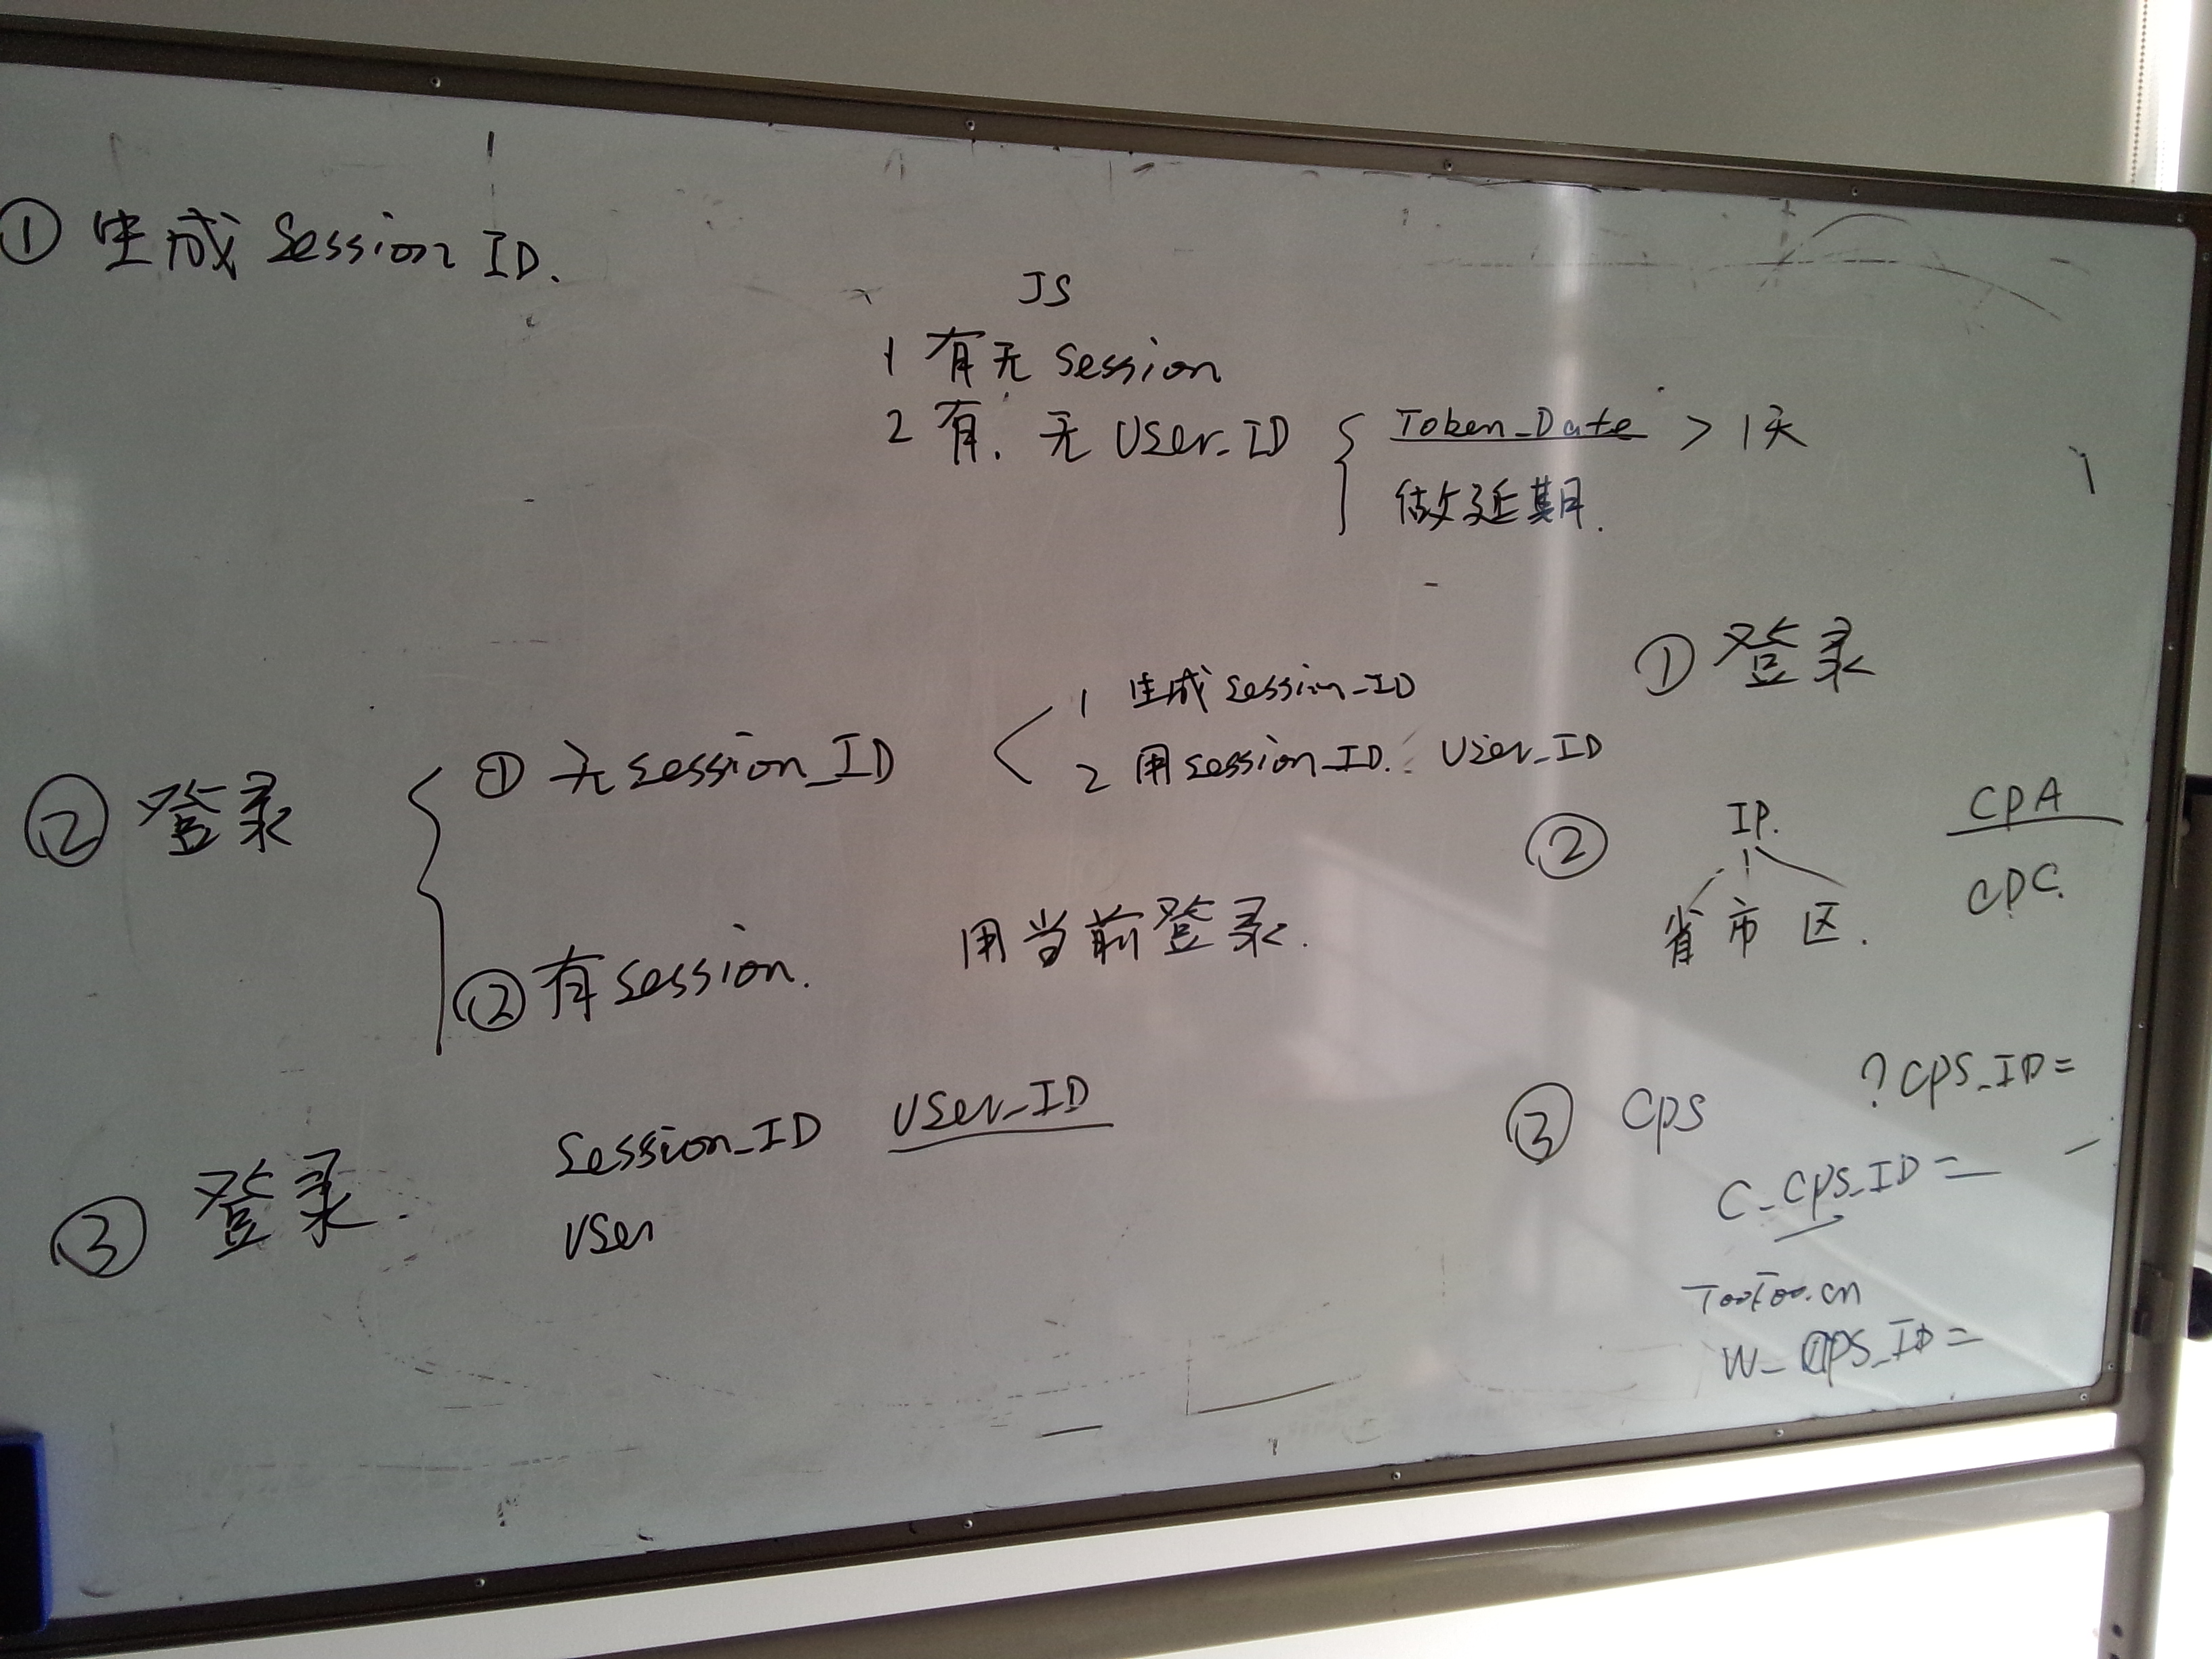 ① 生成 Session ID.
JS
1 有无 Session
2 有. 无 User_ID { Token_Date > 1天
做延期.
② 登录
① 无 Session_ID
1 生成 Session_ID
2 用 Session_ID. User_ID
② 有 Session. 用当前登录.
③ 登录. Session_ID User_ID
User
① 登录
② IP. CPA
省 市 区. CPC.
③ CPS ?CPS_ID=
C_CPS_ID=
TooToo.cn
W_CPS_ID=